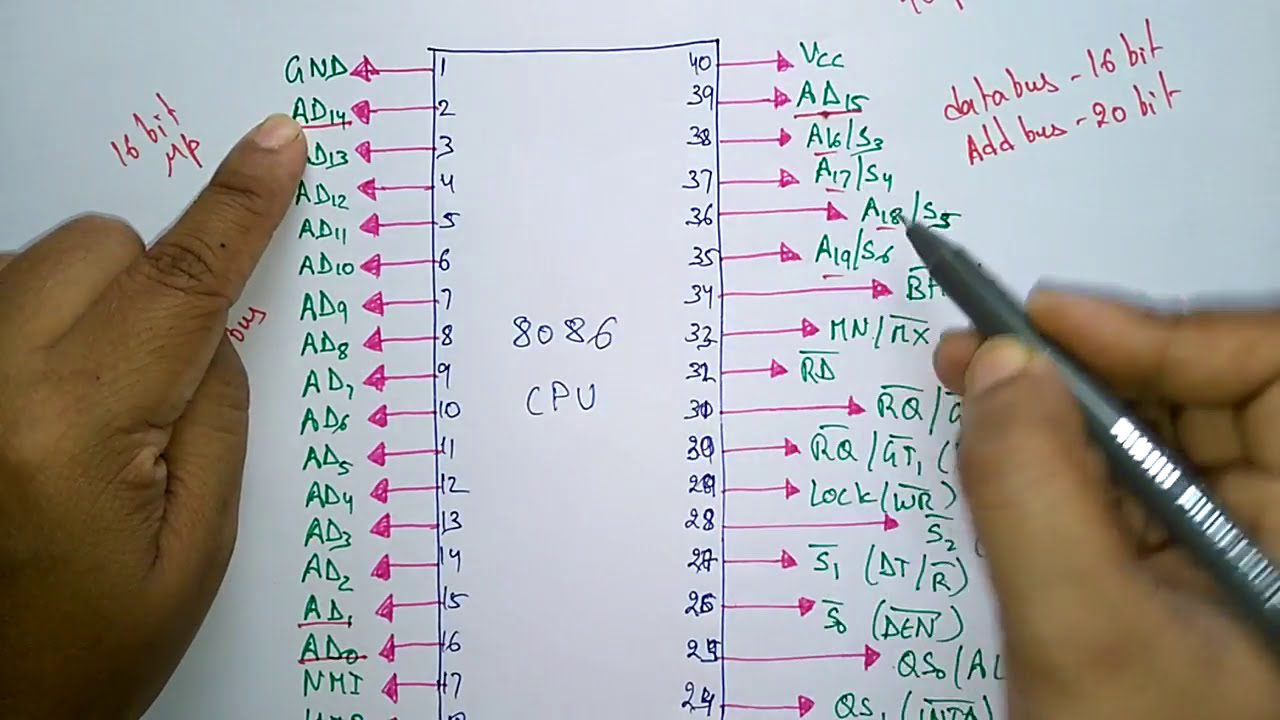 GND 1
AD14 2
AD13 3
AD12 4
AD11 5
AD10 6
AD9 7
AD8 8
AD7 9
AD6 10
AD5 11
AD4 12
AD3 13
AD2 14
AD1 15
AD0 16
NMI 17
16 bit
μp
bus
8086
CPU
40 VCC
39 AD15
38 A16/S3
37 A17/S4
36 A18/S5
35 A19/S6
34
33 MN/M̅X̅
32 R̅D̅
R̅Q̅/
R̅Q̅/G̅T̅1 (
LOCK (W̅R̅)
28 S̅2
27 S̅1 (DT/R̅)
26 S̅0 (D̅E̅N̅)
25 QS0/AL
24 QS1 (I̅N̅T̅A̅)
databus - 16 bit
Add bus - 20 bit